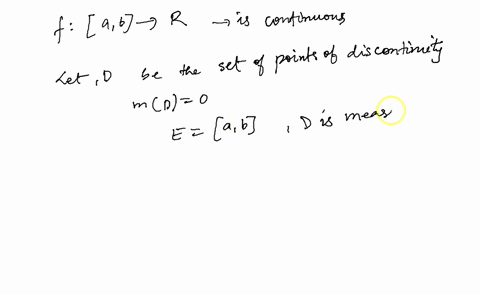 f: [a,b] → R → is continuous
Let, D be the set of points of discontinuity
m(D) = 0
E = [a,b] , D is meas